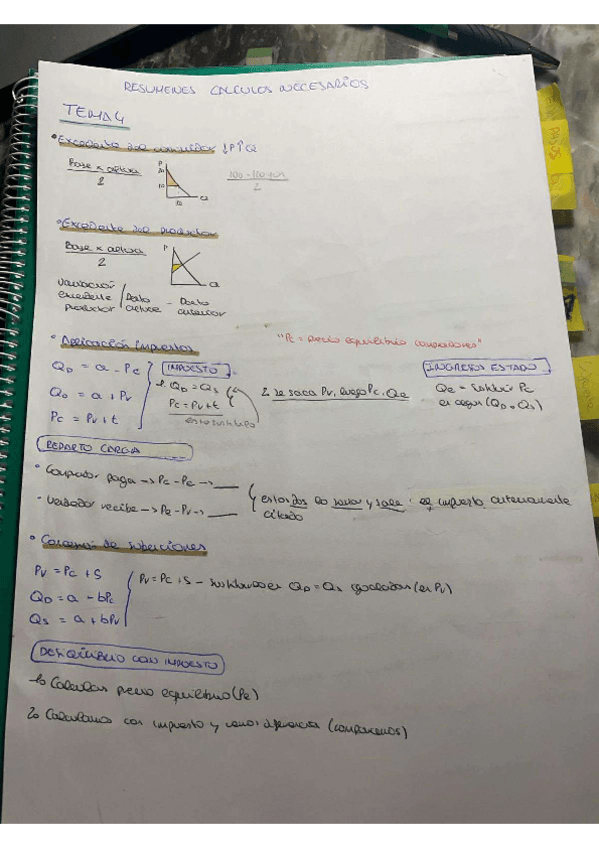 RESUMENES CALCULOS NECESARIOS
TEMA 4
• Excedente del consumidor ↓P↑Q
Base x altura
2
P
20
10
10
Q
100 - 100
2
• Excedente del productor
Base x altura
2
P
Q
Variación
excedente
productor
Dcto
- Dcto
anterior
• Aplicación impuestos
"Pc = precio equilibrio compradores"
QD = a - Pc
QD = a + Pv
Pc = Pv + t
IMPUESTO
1. QD = QS
Pc = Pv + t
2. se saca Pv, luego Pc, Qe
INGRESOS ESTADO
Qe = sustituir Pc
en (QD o QS)
REPARTO CARGA
• Comprador paga → Pc - Pe →
• Vendedor recibe → Pe - Pv →
estos dos los y sale el impuesto
citado
• de subvenciones
Pv = Pc + S
QD = a - bPc
QS = a + bPv
Pv = Pc + S - QD = QS (en Pv)
DESEQUILIBRIO CON IMPUESTO
1. Calcular precio equilibrio (Pe)
2. Calculamos con impuesto y vemos diferencia (comparamos)